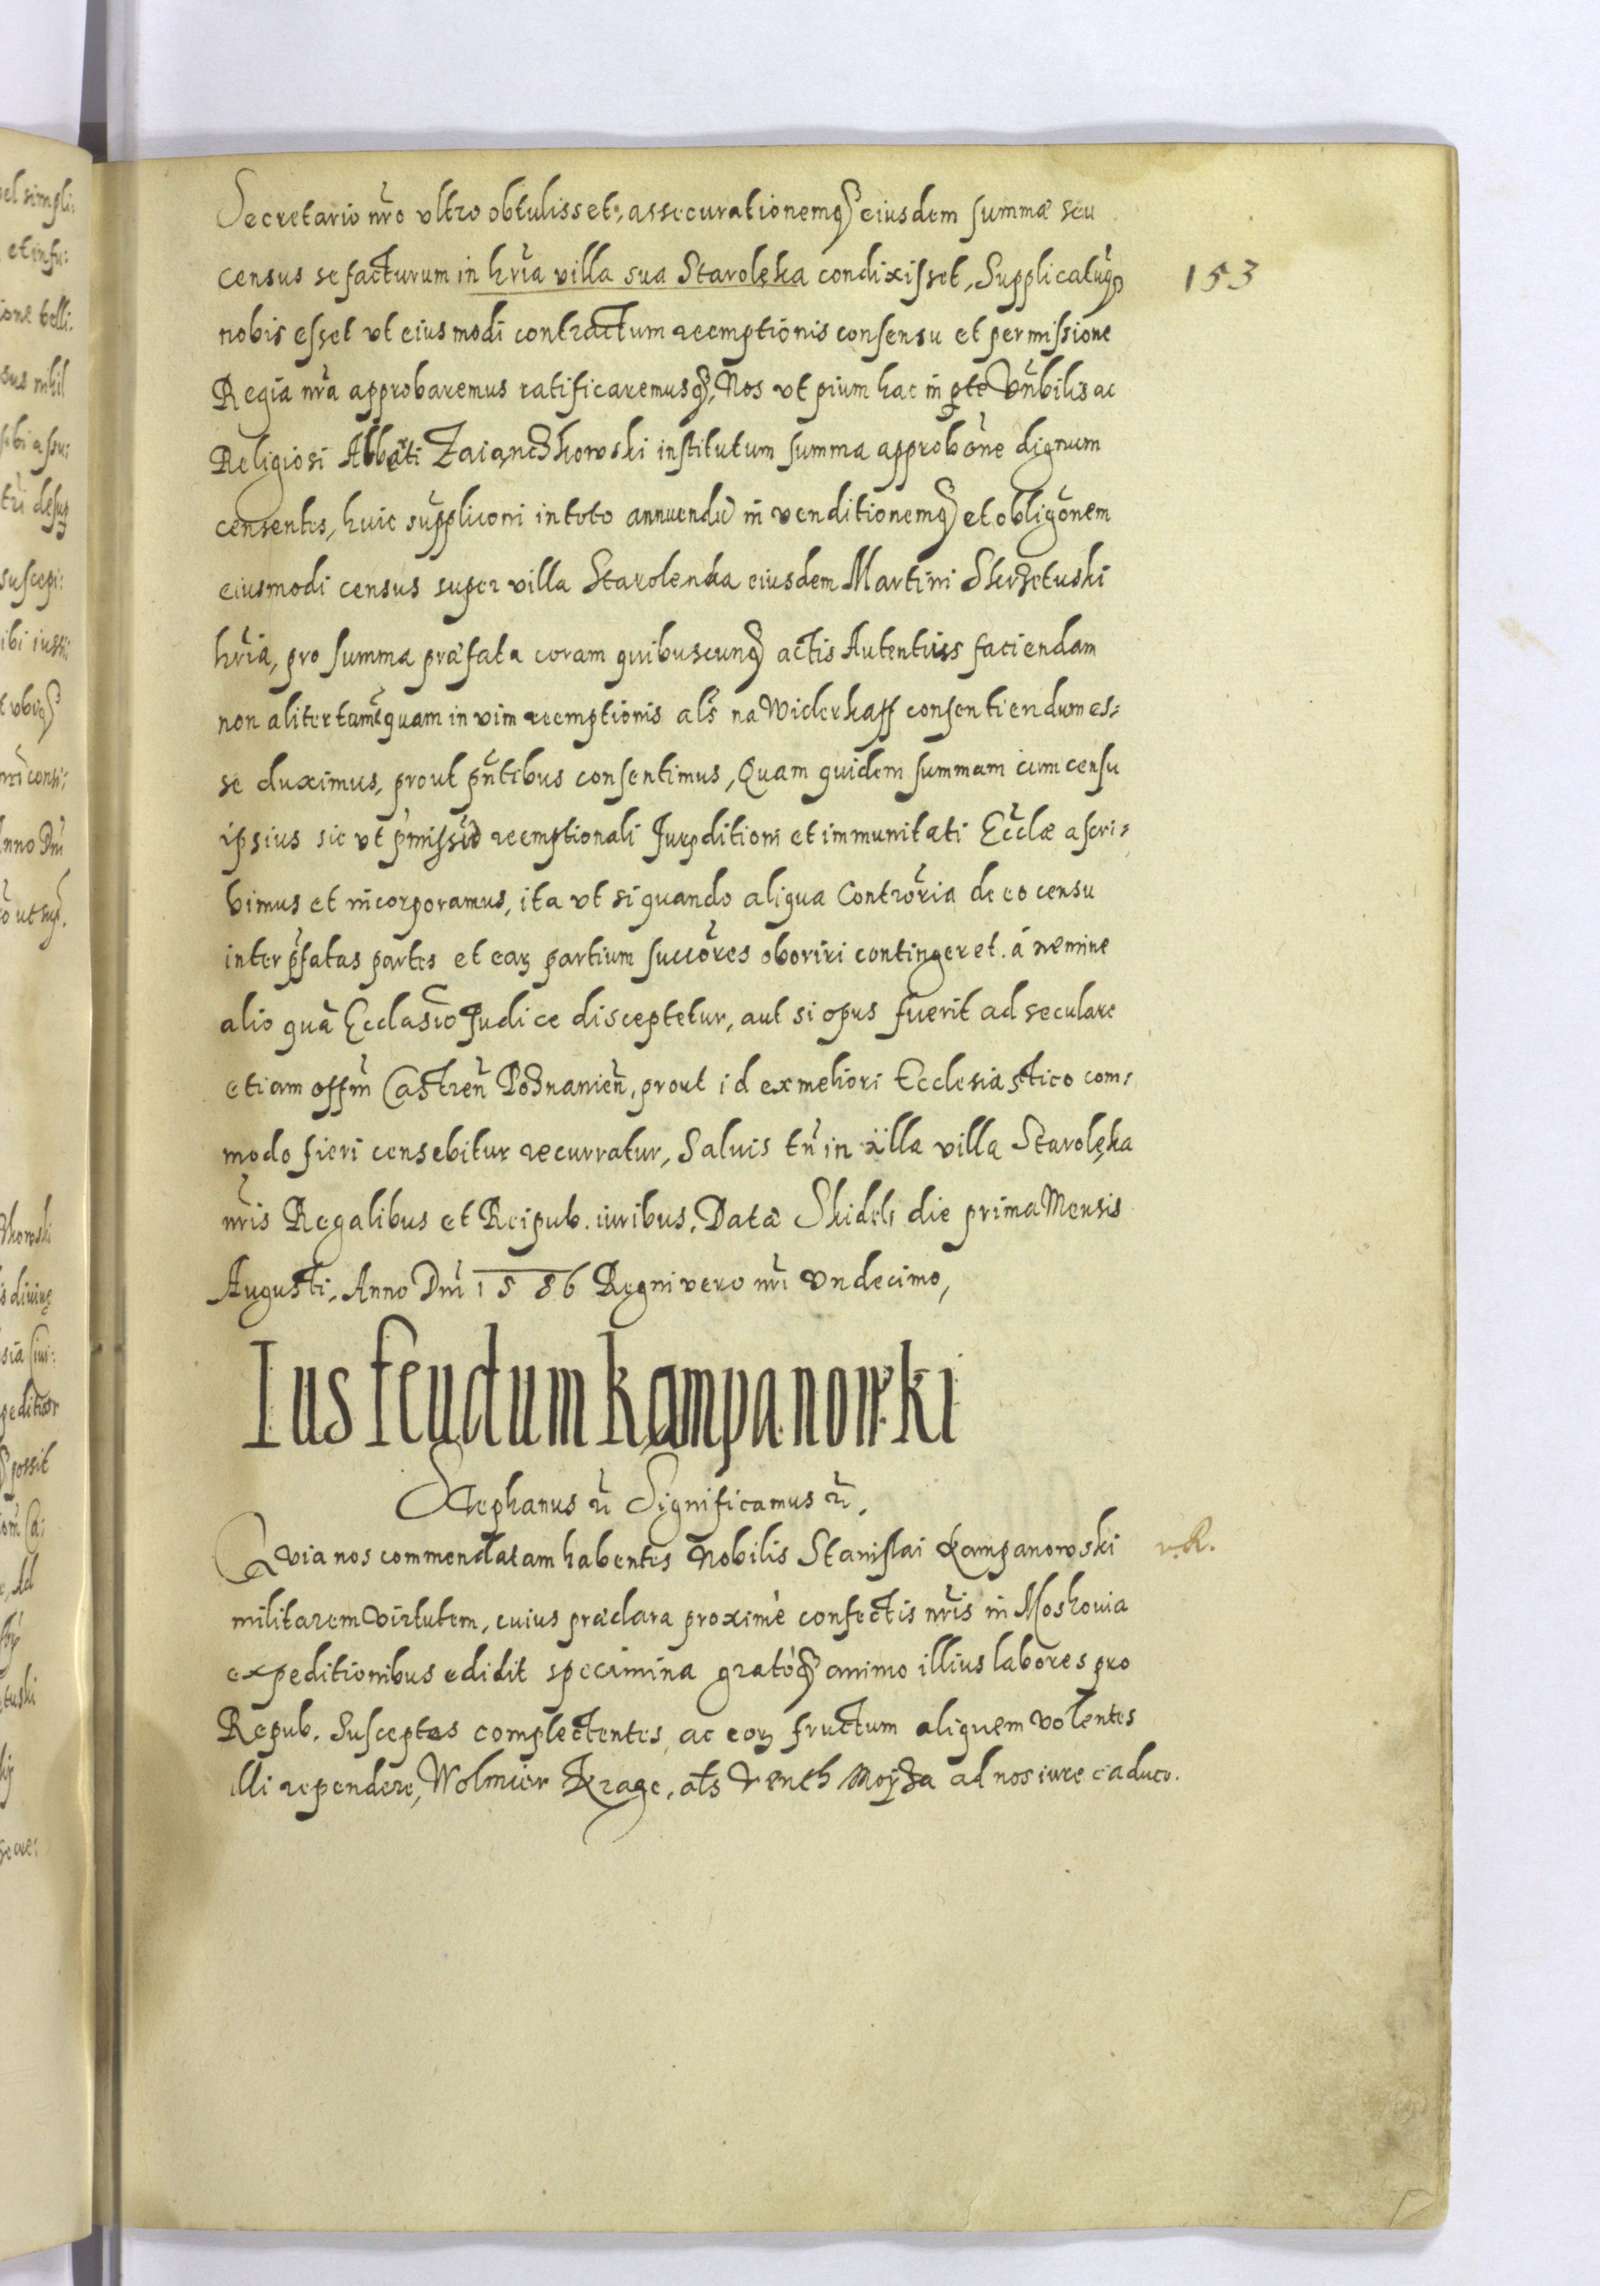 Secretario nr̃o vltro obtulisset, assecurationemq̃ eiusdem summæ seu
census se facturum in hr̃ia villa sua Starolęka condixisset, Supplicatũq̃
153
nobis esset vt eiusmodi contractum reemptionis consensu et permissione
Regia nr̃a approbaremus ratificaremusq̃, Nos vt pium hac in pte Vñbilis ac
Religiosi Abbati Zaiąnczkowski institutum summa approbõne dignum
censentes, huic supplicõni in toto annuendũ in venditionemq̃ et obligõnem
eiusmodi census super villa Starolenka eiusdem Martini Skrzetuski
hr̃ia, pro summa præfata coram quibuscunq̃ actis Autenticis faciendam
non aliter tamẽ quam in vim reemptionis als̃ na Widerkaff consentiendum es-
se duximus, prout pñtibus consentimus, Quam quidem summam cum censu
ipsius sic vt p̃missũ reemptionali Jurisditioni et immunitati Ecc̃læ ascri-
bimus et incorporamus, ita vt si quando aliqua Contror̃ia de eo censu
inter p̃fatas partes et earꝫ partium succõres oboriri contingeret. á nemine
alio quã Ecclas̃co Judice disceptetur, aut si opus fuerit ad seculare
etiam offm̃ Castreñ Posnanieñ, prout id ex meliori Ecclesiastico com-
modo fieri censebitur recurratur, Saluis tñ in illa villa Starolęka
nr̃is Regalibus et Reipub. iuribus, Datã Skidel die prima Mensis
Augusti, Anno Dñi 1586 Regni vero nr̃i Vndecimo,
Ius feudum kampanowski
Stephanus r̃ Significamus r̃.
Quia nos commendatam habentes Nobilis Stanislai Kampanowski
v. R.
militarem virtutem, cuius præclara proximè confectis nr̃is in Moskouia
expeditionibus edidit specimina gratóq̃ animo illius labores pro
Repub. susceptos complectentes, ac eorꝫ fructum aliquem volentes
illi rependere, Wolmier Krage, als Venth Moyza ad nos iure caduco.